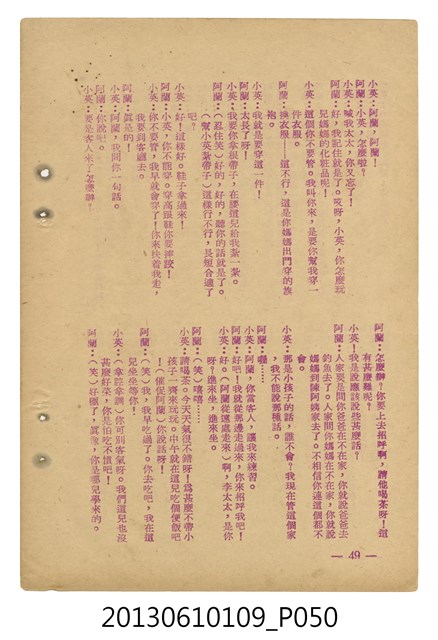 小英：阿蘭，阿蘭！
阿蘭：小英，怎麼啦？
小英：喊我太太，你又忘了！
阿蘭：好，我記住就是了。哎呀，小英，你怎麼玩
兒媽媽的化粧品呢！
小英：這個你不要管。我叫你來，是要你幫我穿一
件衣服。
阿蘭：換衣服——這不行，這是你媽媽出門穿的旗
袍。
小英：我就是要穿這一件！
阿蘭：太長了呀！
小英：我要你拿根帶子，在腰這兒給我紮一紮。
阿蘭：（忍住笑）好的，好的，聽你的話就是了。
（幫小英紮帶子）這樣行不行，長短合適了
吧？
小英：好！這樣好。鞋子拿過來！
阿蘭：小英，你不能穿。穿高跟鞋你要摔跤！
小英：你不要管，我早就會穿了！你來扶着我走，
我要到客廳去。
阿蘭：眞是的！
小英：阿蘭，我問你一句話。
阿蘭：你說吧。
小英：要是客人來了怎麼辦？
阿蘭：怎麼辦？你要上去招呼啊，請他喝茶呀！這
有甚麼難呢？
小英：我是說應該說些甚麼話？
阿蘭：人家要是問你爸爸在不在家，你就說爸爸去
釣魚去了。人家問你媽媽在不在家，你就說
媽媽到陳阿姨家去了。不相信你連這個都不
會。
小英：那是小孩子的話，誰不會？我現在管這個家
，我不能說那種話。
阿蘭：喔……
小英：阿蘭，你當客人，讓我來練習。
阿蘭：好吧！我就從那邊走過來，你來招呼我吧！
小英：好。（阿蘭從遠處走來）啊，李太太，是你
呀？進來坐，進來坐。
阿蘭：（笑）嘻嘻……
小英：請喝茶。今天天氣很不錯呀！爲甚麼不帶小
孩子一齊來玩玩。中午就在這兒吃個便飯吧
！（催促阿蘭）你說話呀！
阿蘭：（笑）我，我早吃過了。你去吃吧，我在這
兒坐坐等你！
小英：（拿腔拿調）你可別客氣呀。我們這兒也沒
甚麼好菜，你是怕吃不慣吧！
阿蘭：（笑）好極了，眞像，你是哪兒學來的。
— 49 —
20130610109_P050